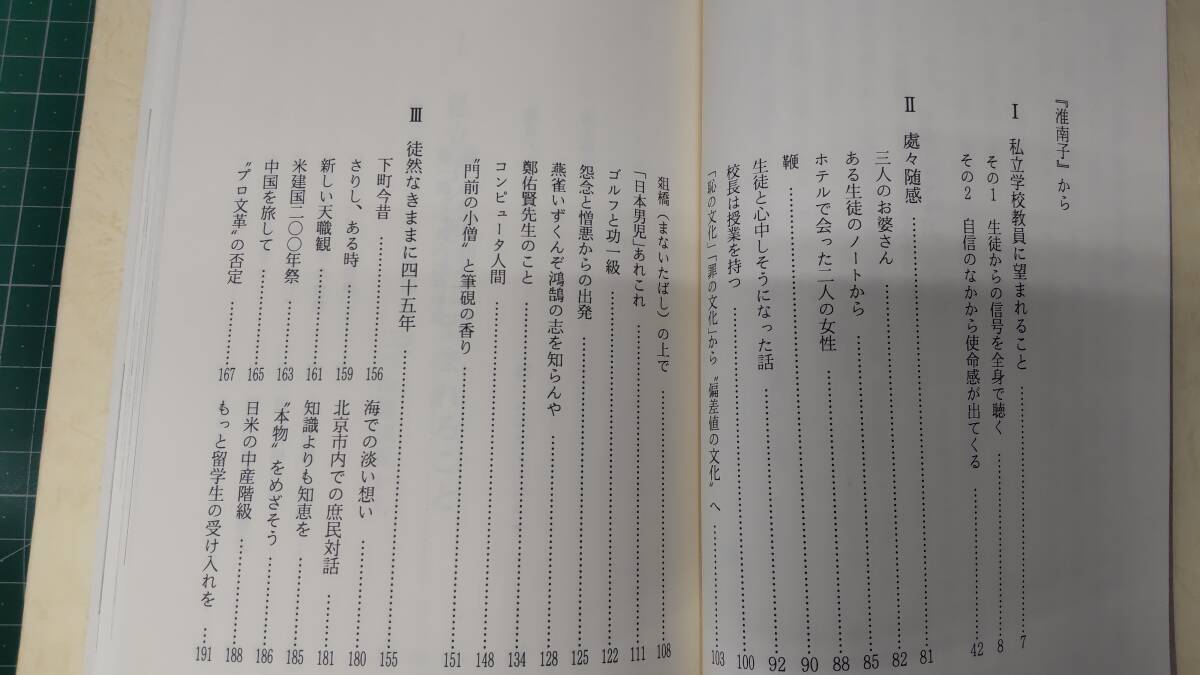 『淮南子』から
Ⅰ 私立学校教員に望まれること …… 7
その1 生徒からの信号を全身で聴く …… 8
その2 自信のなかから使命感が出てくる …… 42
Ⅱ 處々随感 …… 81
三人のお婆さん …… 82
ある生徒のノートから …… 85
ホテルで会った二人の女性 …… 88
鞭 …… 90
生徒と心中しそうになった話 …… 92
校長は授業を持つ …… 100
「恥の文化」「罪の文化」から〝偏差値の文化〟へ …… 103
爼橋（まないたばし）の上で …… 108
「日本男児」あれこれ …… 111
ゴルフと功一級 …… 122
怨念と憎悪からの出発 …… 125
燕雀いずくんぞ鴻鵠の志を知らんや …… 128
鄭佑賢先生のこと …… 134
コンピュータ人間 …… 148
〝門前の小僧〟と筆硯の香り …… 151
Ⅲ 徒然なきままに四十五年 …… 155
下町今昔 …… 156
さりし、ある時 …… 159
新しい天職観 …… 161
米建国二〇〇年祭 …… 163
中国を旅して …… 165
〝プロ文革〟の否定 …… 167
海での淡い想い …… 180
北京市内での庶民対話 …… 181
知識よりも知恵を …… 185
〝本物〟をめざそう …… 186
日米の中産階級 …… 188
もっと留学生の受け入れを …… 191